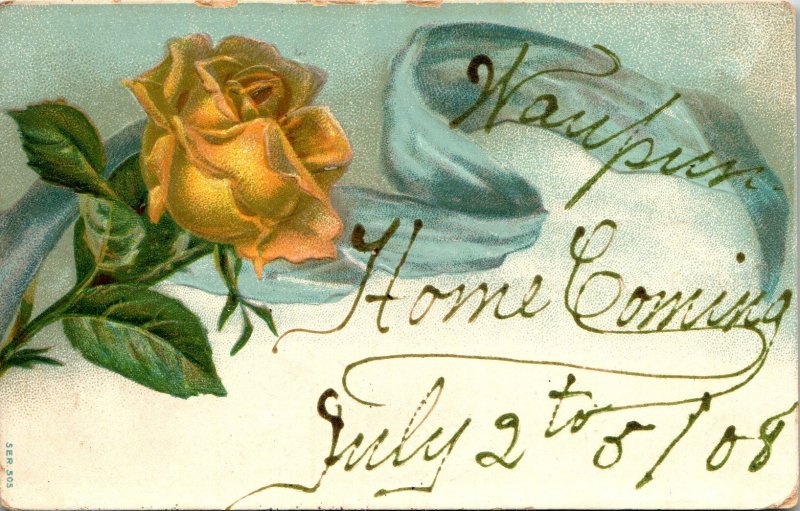 Waupun
Home Coming
July 2 to 5/08
SER. 505